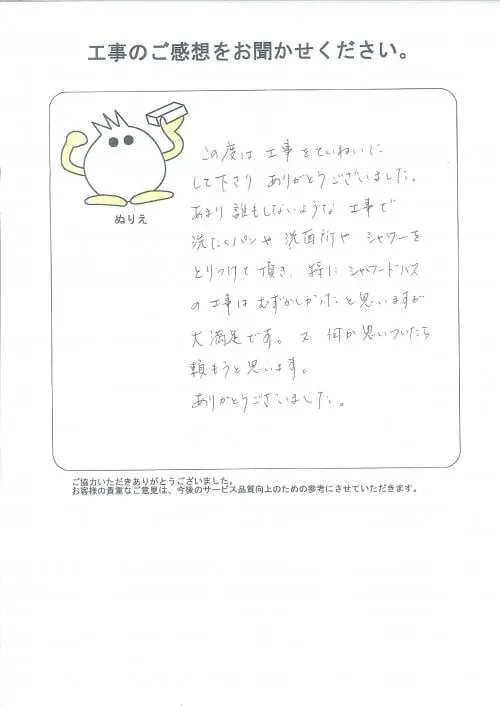 工事のご感想をお聞かせください。
ぬりえ
この度は 工事をていねいに
して下さり ありがとうございました。
あまり 誰もしないような 工事で
洗たくパンや 洗面所や シャワーを
とりつけて 頂き、特に シャワードバス
の工事は むずかしかったと思いますが
大満足です。又 何か思いついたら
頼もうと思います。
ありがとうございました。
ご協力いただきありがとうございました。
お客様の貴重なご意見は、今後のサービス品質向上のための参考にさせていただきます。